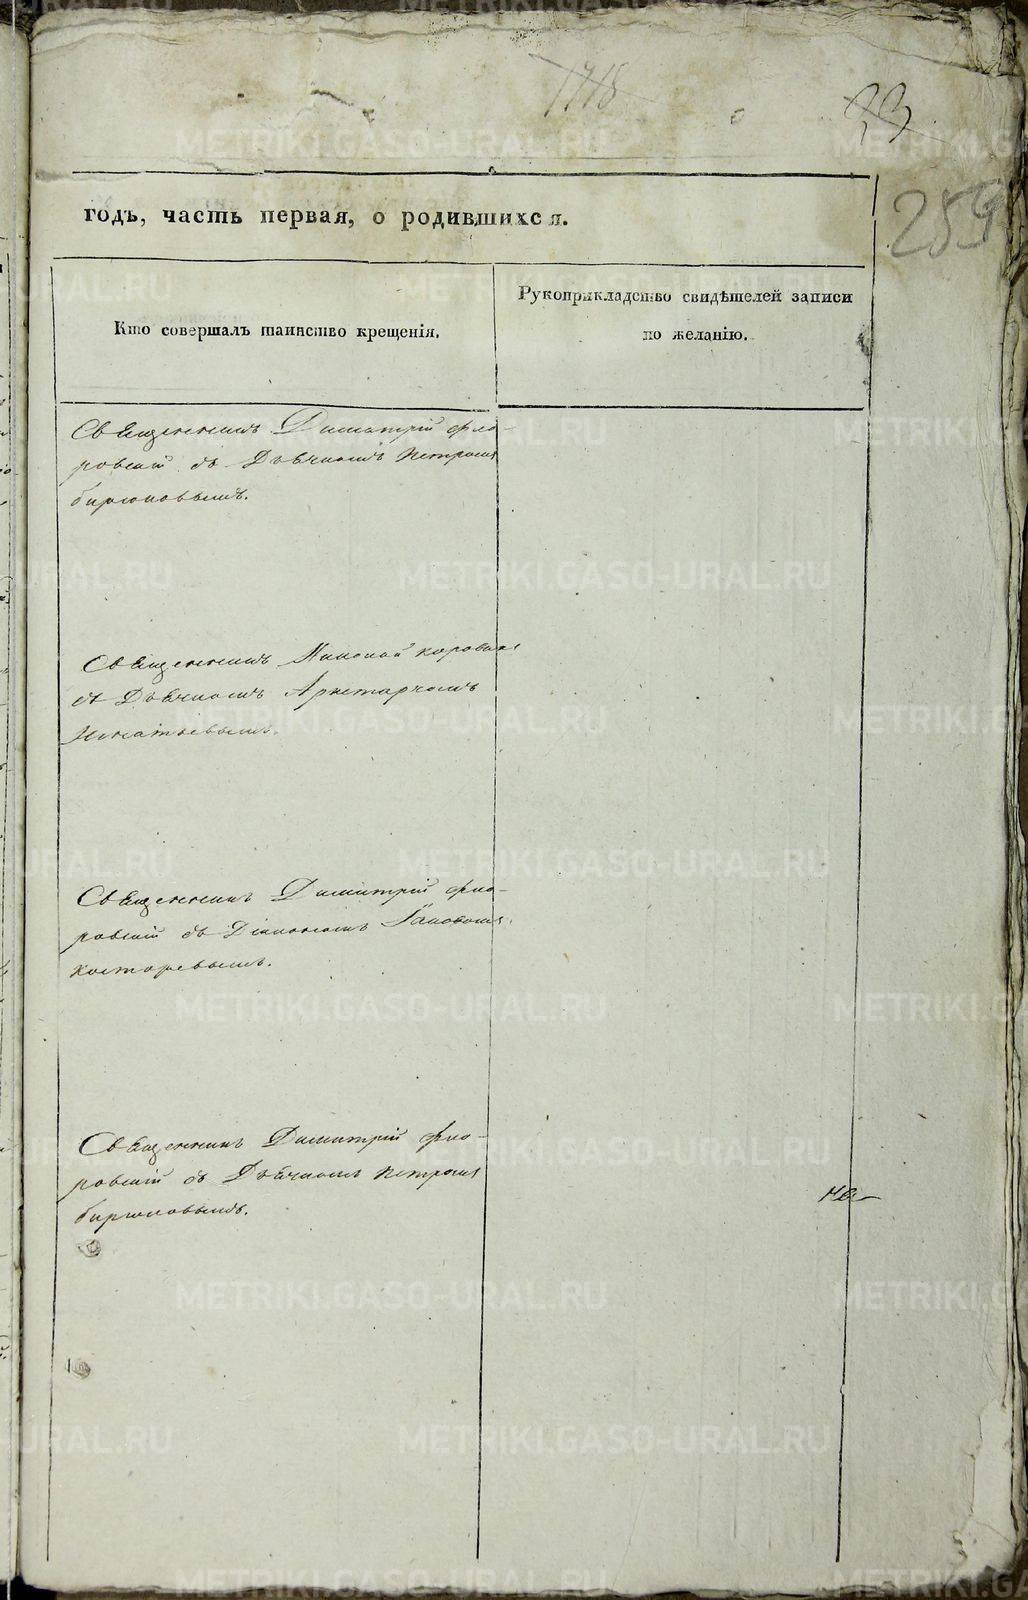 1718
33
259
годъ, часть первая, о родившихся.
Кто совершалъ таинство крещенія.
Рукоприкладство свидѣтелей записи
по желанію.
Священникъ Димитрій Фло-
ровскій съ Дьячкомъ Петромъ
Бирюковымъ.
Священникъ Николай Коровинъ
съ Дьячкомъ Аристархомъ
Игнатьевымъ.
Священникъ Димитрій Фло-
ровскій съ Діакономъ Іаковомъ
Косторевымъ.
Священникъ Димитрій Фло-
ровскій съ Дьячкомъ Петромъ
Бирюковымъ.
METRIKI.GASO-URAL.RU